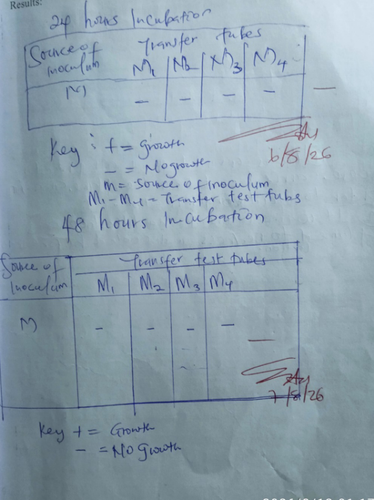 Results:
24 hours Incubation
Source of inoculum Transfer tubes
M1 M2 M3 M4
M - - - - -
6/8/26
Key : + = Growth
- = No growth
M = Source of inoculum
M1 - M4 = Transfer test tubs
48 hours Incubation
Source of Inoculum Transfer test tubes
M1 M2 M3 M4
M - - - - -
7/8/26
Key + = Growth
- = No Growth